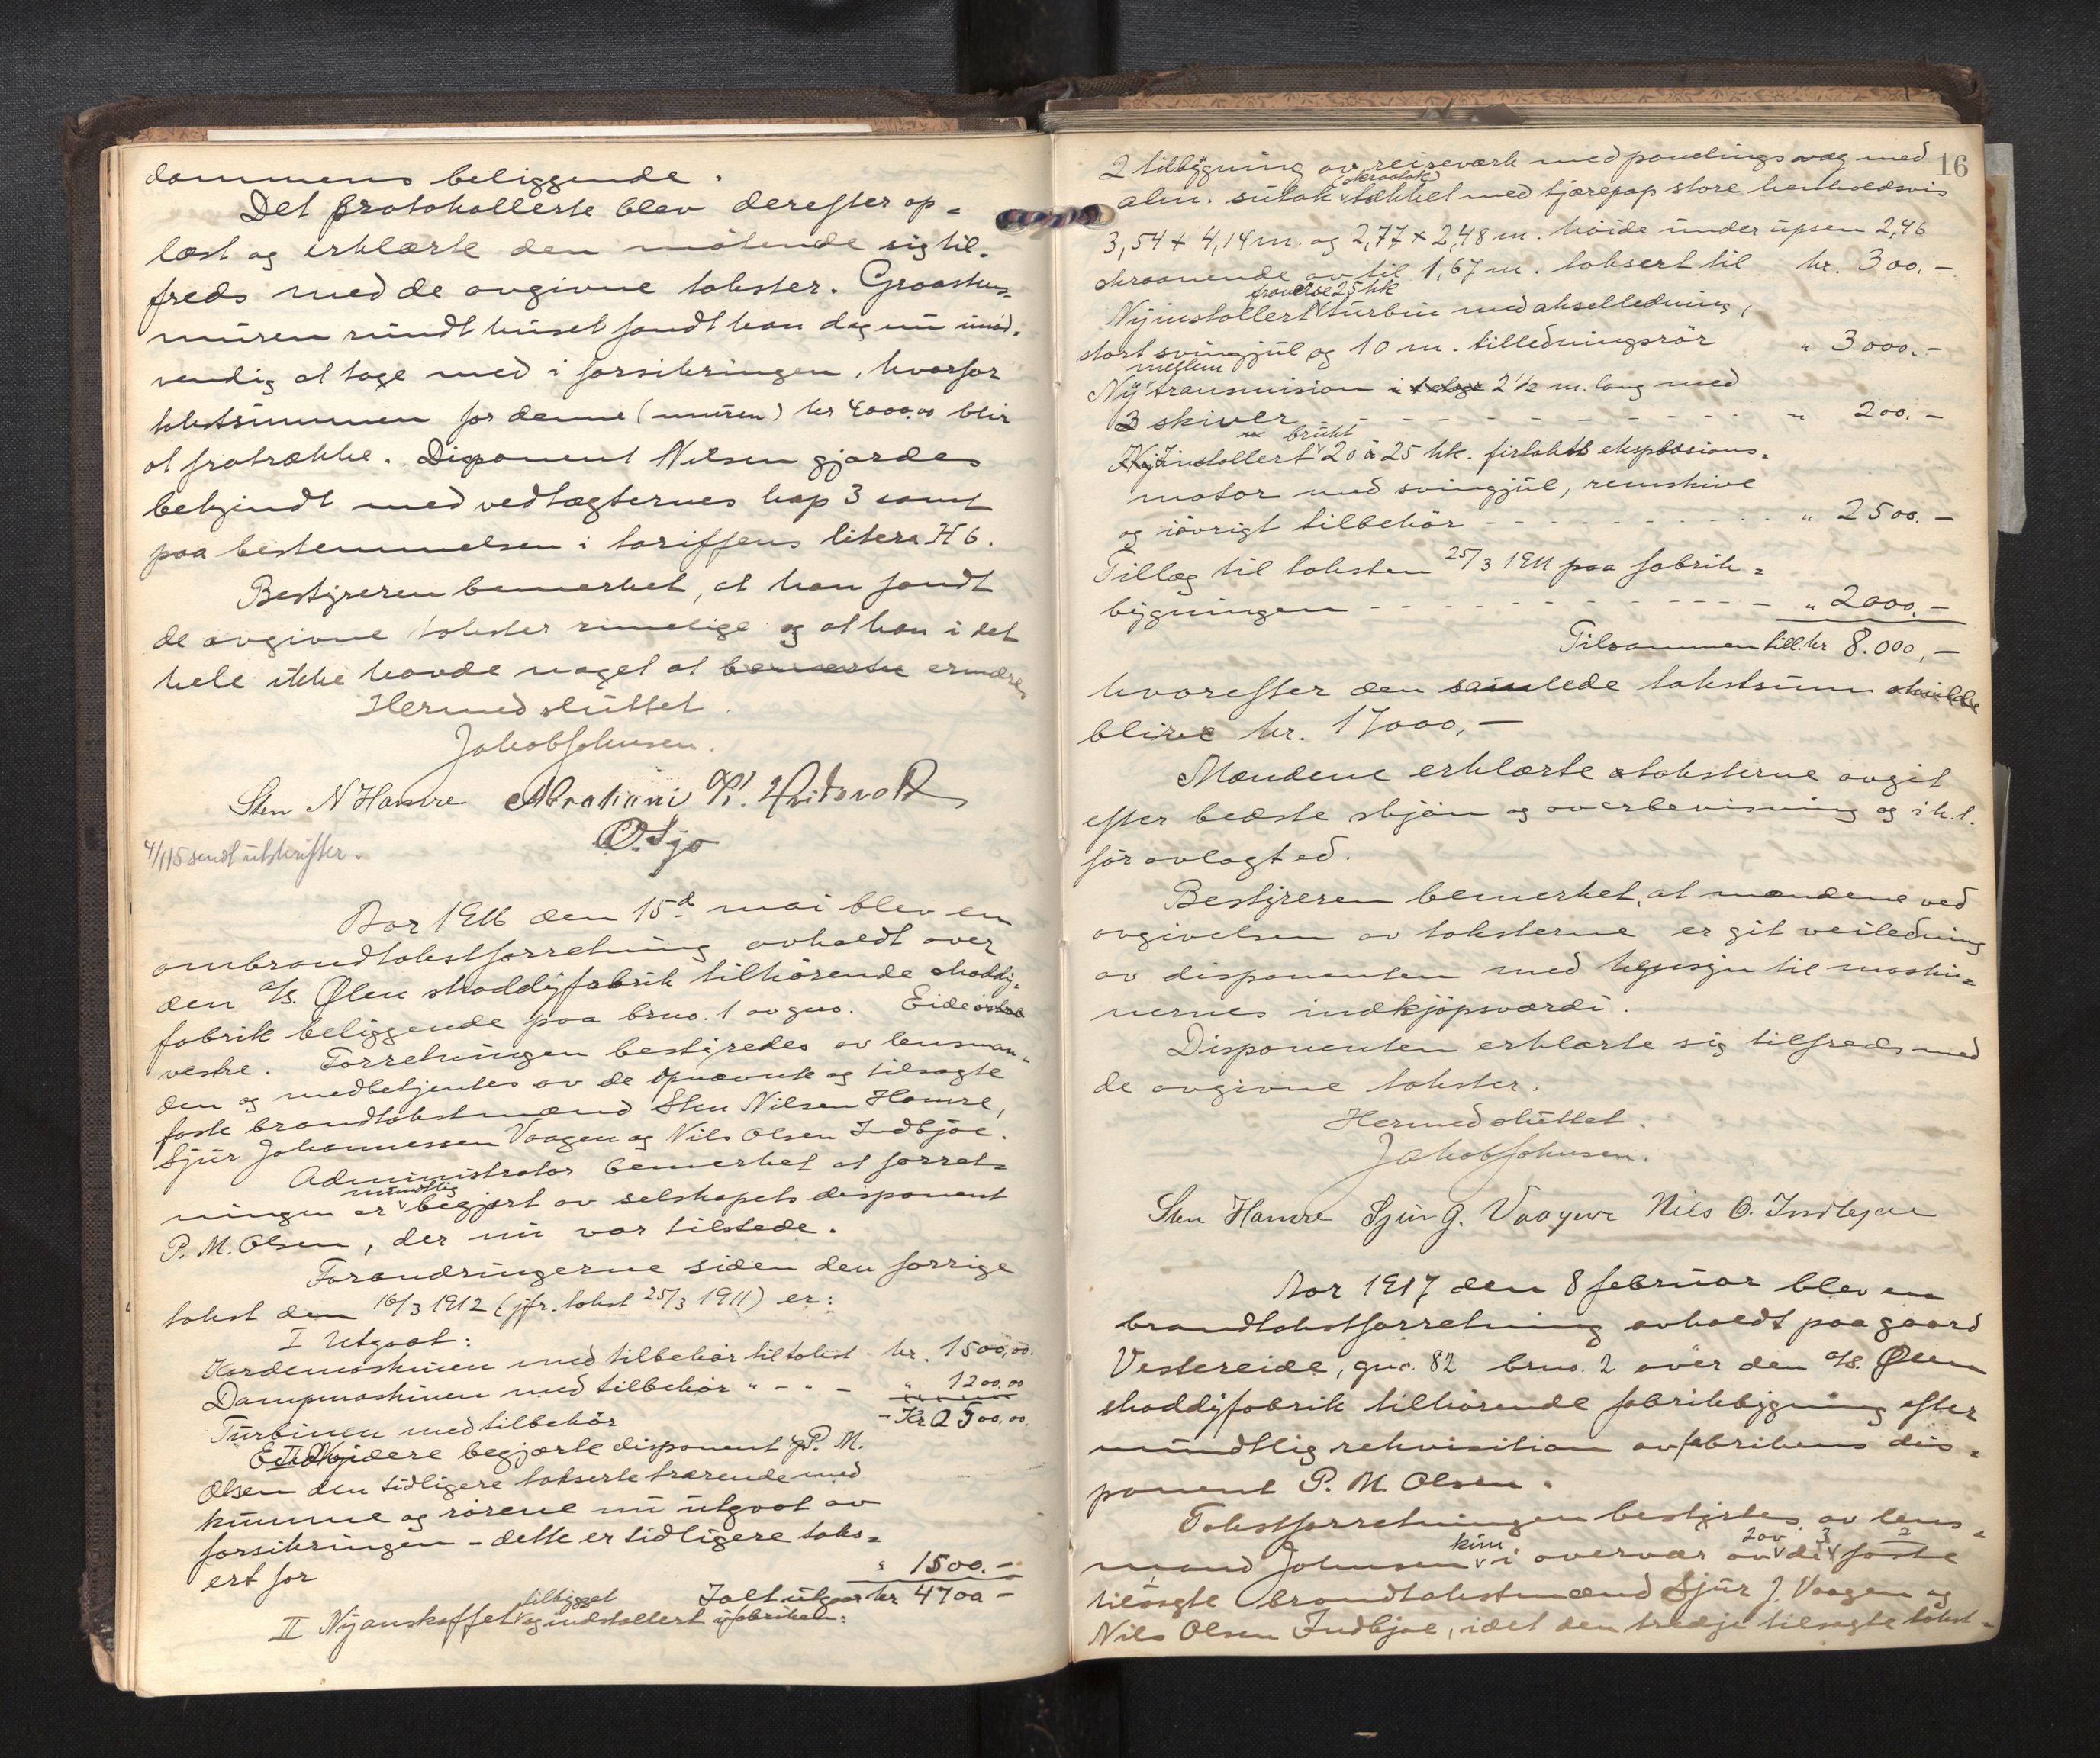 dammens beliggende.
Det protokollerte blev derefter op=
læst og erklærte den mötende sig til=
freds med de avgivne takster. Graastens=
muren rundt huset fandt han dog nu unöd=
vendig at tage med i forsikringen, hvorfor
takstsummen for denne (muren) kr 4000.00 blir
at fratrække. Disponent Nilsen gjordes
bekjendt med vedtægternes kap 3 samt
paa bestemmelsen i tariffens litera H 6.
Bestyreren bemerket, at han fandt
de avgivne takster rimelige og at han i det
hele ikke havde noget at bemærke erindre.
Hermed sluttet.
Jakob Johnsen.
Sten N Hamre Abraham
O. Sjo
4/115 sendt utskrifter.
Aar 1916 den 15d mai blev en
ombrandtakstforretning avholdt over
den a/s. Ølen shoddyfabrik tilhörende shoddy=
fabrik beliggende paa brno. 1 av gno. Eide östre
vestre. Forretningen bestyredes av lensman=
den og medbetjentes av de opnævnte og tilsagte
faste brandtakstmænd Sten Nilsen Hamre,
Sjur Johannessen Vaagen og Nils Olsen Indbjoe.
Administrator bemerket at forret=
ningen er mundtlig begjært av selskapets disponent
P. M. Olsen, der nu var tilstede.
Forandringerne siden den forrige
takst den 16/3 1912 (jfr. takst 25/3 1911) er:
I Utgaat:
Kardemaskinen med tilbehör til takst kr. 1500,00.
Dampmaskinen med tilbehör " - " - " 1200.00
Turbinen med tilbehör - Kr 2500.00.
videre begjærte disponent P. M.
Olsen den tidligere takserte trærende med
kumme og rörene nu utgaat av
forsikringen - dette er tidligere taks=
ert for " 1500.-
Ialt utgaar kr 4700 -
II Nyanskaffet tilbygget og indstallert i fabriken:
16
2 tilbygning av reiseværk med panelingsvæg med
alm. sutak skraatak tækket med tjærepap store henholdsvis
3,54 x 4,14 m. og 2,77 x 2,48 m. höide under upsen 2,46
skraanende av til 1,67 m. taksert til kr. 300.-
Nyinstallert turbin 25 hk med akselledning,
stort svinghjul og 10 m. tilledningsrör " 3000.-
Ny mellem transmision i 2 1/2 m. lang med
3 skiver - - - - - - - - " 200.-
Ny Installert brukt 20 à 25 hk. firtakts eksplosions=
motor med svinghjul, remskive
og iövrigt tilbehör - - - - - - " 2500.-
Tillæg til taksten 25/3 1911 paa fabrik=
bygningen - - - - - - - - " 2000.-
Tilsammen till. kr 8.000,-
hvorefter den samlede takstsum skulde
blive kr. 17000,-
Mændene erklærte taksterne avgit
efter bedste skjön og overbevisning og i h.t.
för avlagt ed.
Bestyreren bemerket, at mændene ved
avgivelsen av taksterne er git veiledning
av disponenten med hensyn til maskin=
nernes indkjöpsværdi.
Disponenten erklærte sig tilfreds med
de avgivne takster.
Hermed sluttet.
Jakob Johnsen.
Sten Hamre Sjur J. Vaagen Nils O. Indbjoe
Aar 1917 den 8 februar blev en
brandtakstforretning avholdt paa gaard
Vestereide, gno. 82 brno. 2 over den a/s. Ølen
shoddyfabrik tilhörende fabrikbygning efter
mundtlig rekvisition av fabrikens dis=
ponent P. M. Olsen.
Takstforretningen bestyrtes av lens=
mand Johnsen kun i overvær av 2 av de 3 faste
tilsagte brandtakstmænd Sjur J. Vaagen og
Nils Olsen Indbjoe, idet den tredje tilsagte takst=